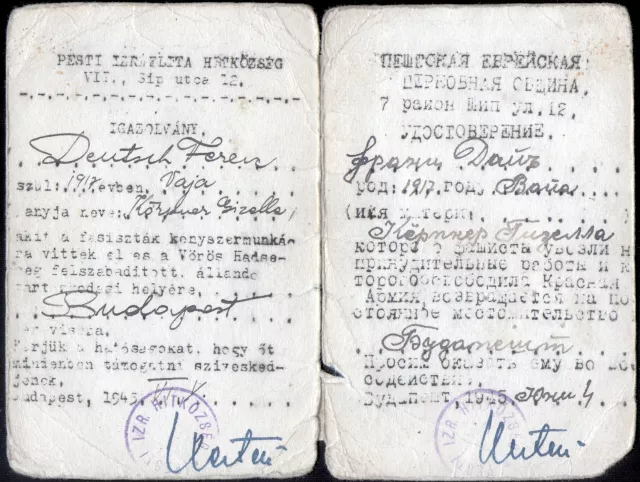 PESTI IZRAELITA HITKÖZSÉG
VII., Sip utca 12.
IGAZOLVÁNY.
Deutsch Ferenc
szül: 1917 évben, Vaja
anyja neve: Körpner Gizella
akit a fasiszták kényszermunká-
ra vittek el és a Vörös Hadse-
reg felszabadított, állandó
tartózkodási helyére,
Budapest
-re vissza.
Kérjük a hatóságokat, hogy őt
mindenben támogatni szívesked-
jenek.
Budapest, 1945.
IZR HITKÖZSÉG
ПЕШТСКАЯ ЕВРЕЙСКАЯ
ЦЕРКОВНАЯ ОБЩИНА.
7 район Шип ул. 12.
УДОСТОВЕРЕНИЕ.
Франц Дайч
род: 1917 году, Вайа
(имя матери:
Кёрпнер Гизелла
которого фашиста увезли н
принудительные работы и к
торого освободила Красная
Армия возвращается на по
стоянное местожительство
Будапешт
Просим оказать ему во
содействие.
Будапешт, 1945. Юни 4
IZR HITKÖZSÉG